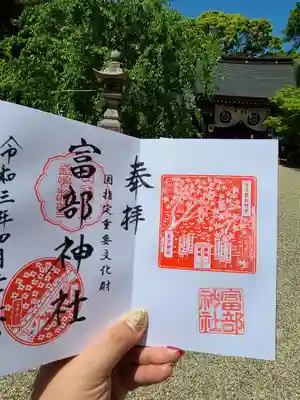 奉拝
国指定重要文化財
富部神社
令和三年四月
富部
神社